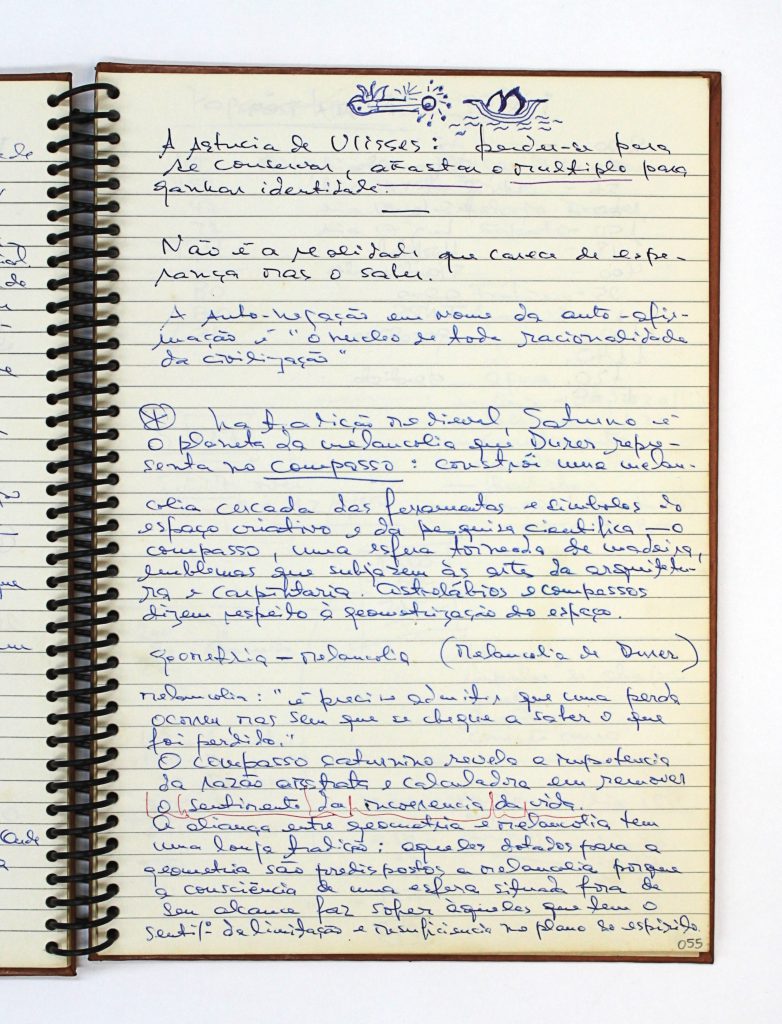 A Astucia de Ulisses: perder-se para
se conservar, afastar o multiplo para
ganhar identidade.
Não é a realidade que carece de espe-
rança mas o saber.
A auto-negação em nome da auto-afir-
mação é "o nucleo de toda racionalidade
da civilização"
* Na tradição medieval, Saturno é
o planeta da melancolia que Durer repre-
senta no compasso: constrói uma melan-
colia cercada das ferramentas e simbolos do
espaço criativo e da pesquisa cientifica — o
compasso, uma esfera torneada de madeira,
emblemas que subjazem às artes da arquitetu-
ra e carpintaria. Astrolábios e compassos
dizem respeito à geometrização do espaço.
geometria — melancolia (Melancolia de Durer)
melancolia: "é preciso admitir que uma perda
ocorreu mas sem que se chegue a saber o que
foi perdido."
O compasso saturnino revela a impotencia
da razão abstrata e calculadora em remover
o sentimento da incoerencia da vida.
A aliança entre geometria e melancolia tem
uma longa tradição: aqueles dotados para a
geometria são predispostos a melancolia porque
a consciência de uma esfera situada fora de
seu alcance faz sofrer àqueles que tem o
sentiº da limitação e insuficiencia no plano do espirito.
055
ial.
do
que
em
Onde
a